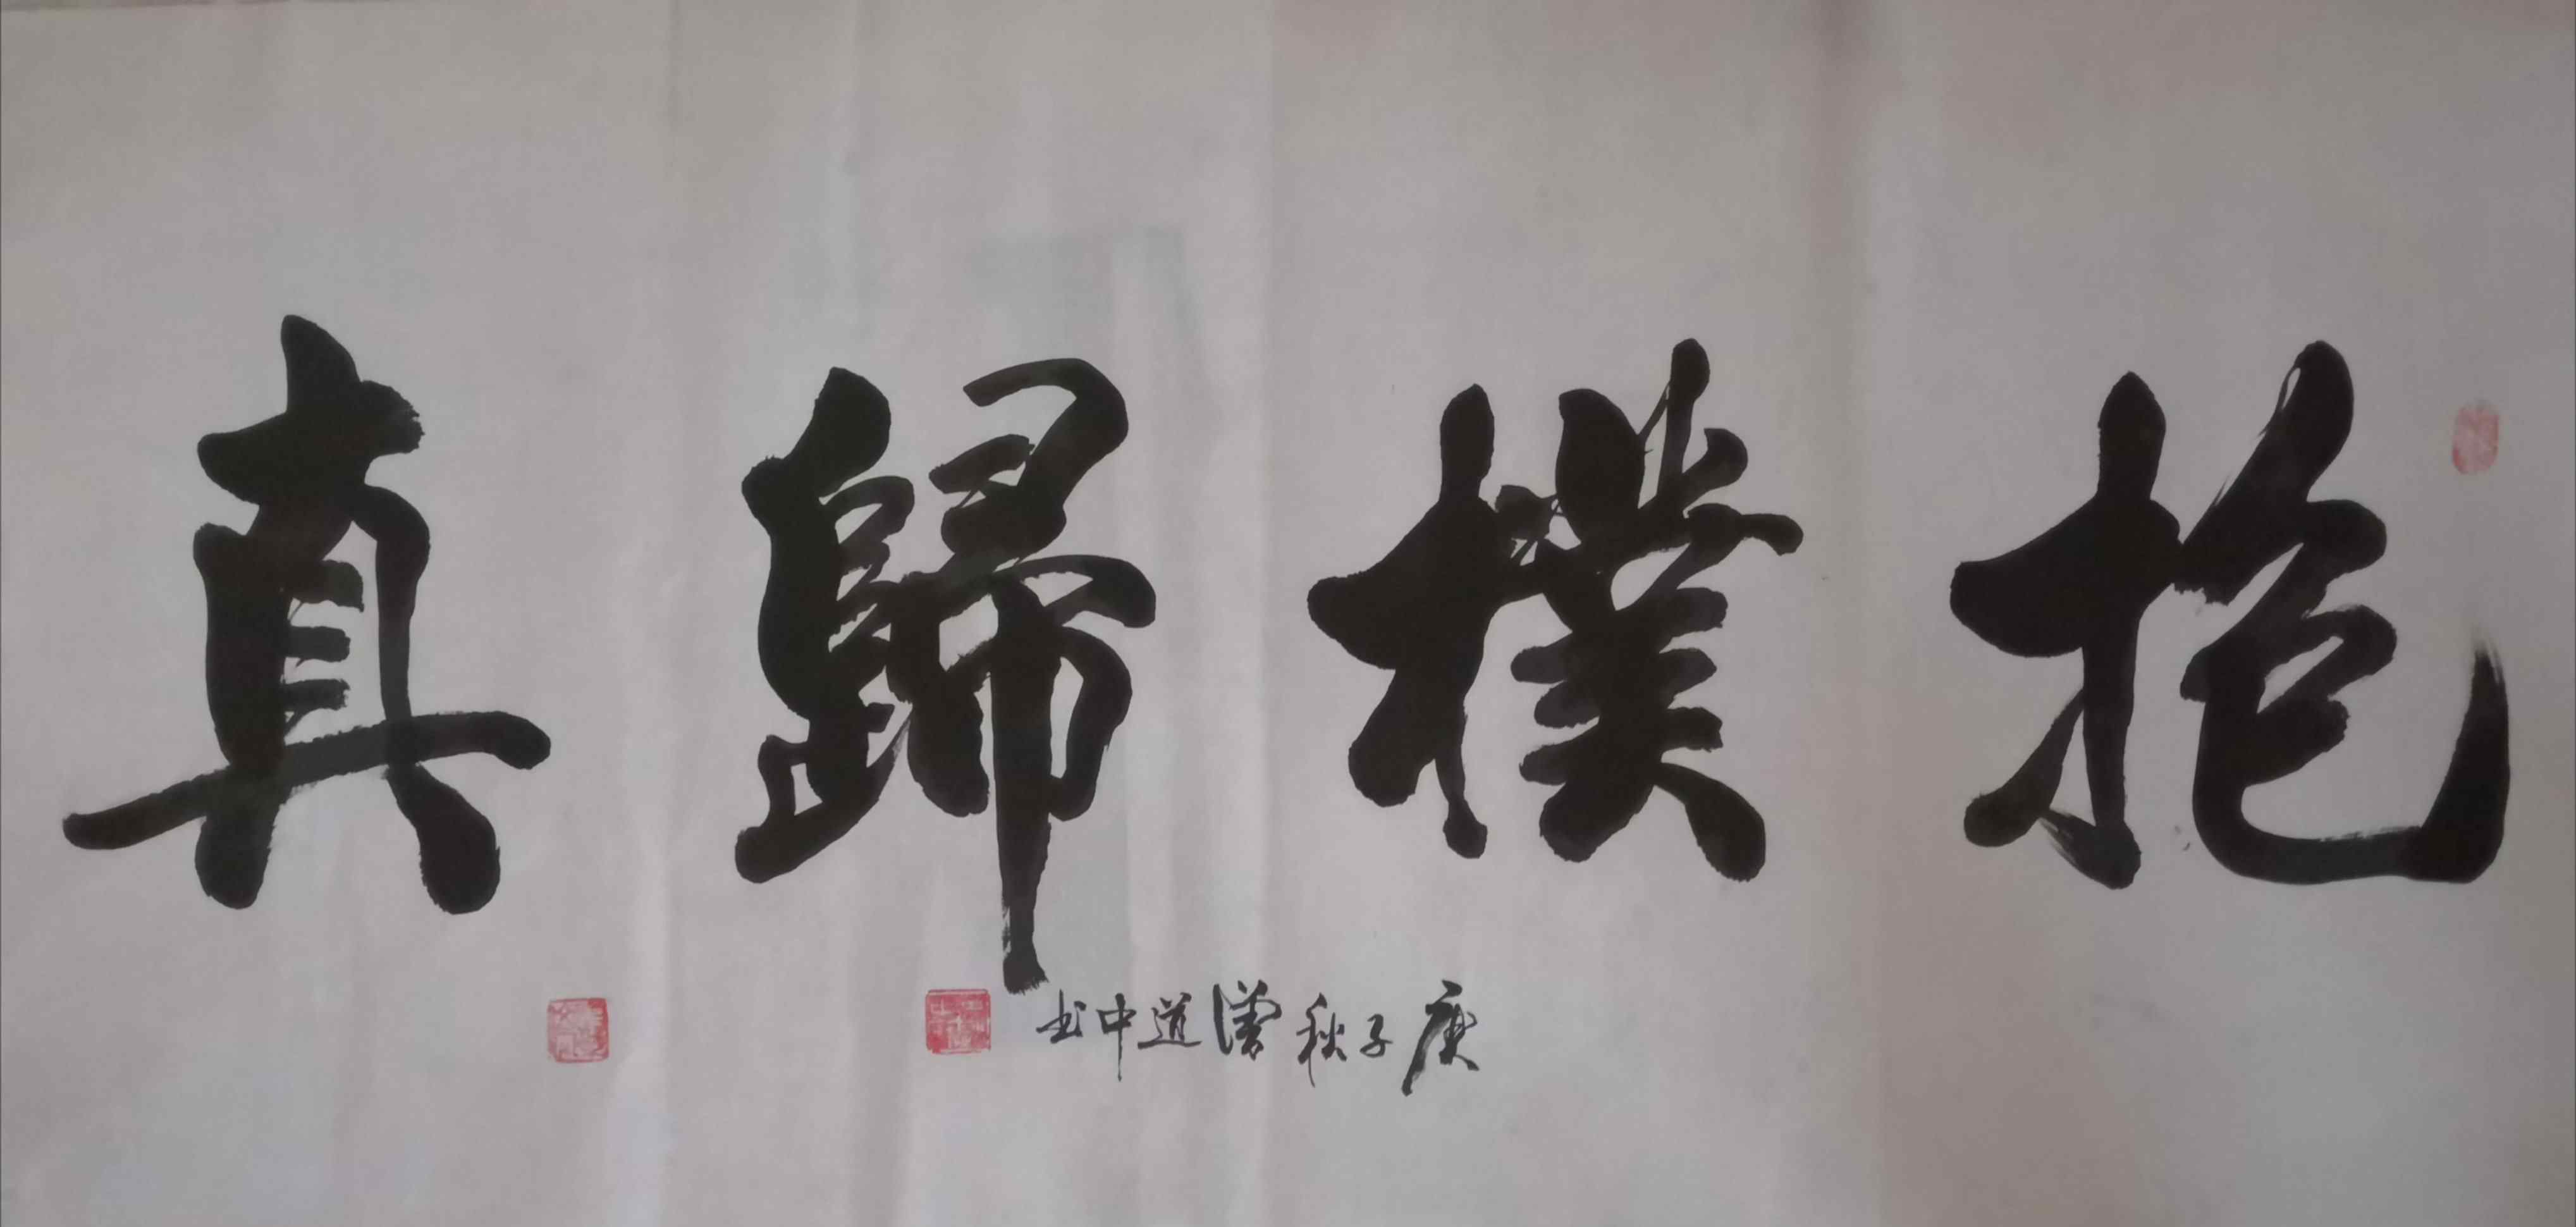 抱樸歸真
庚子秋漢道中书